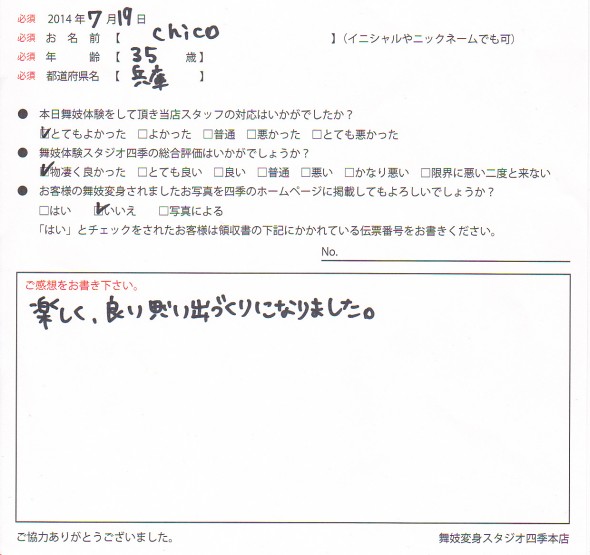 必須 2014年7月19日
必須 お名前【 chico 】(イニシャルやニックネームでも可)
必須 年齢【 35 歳】
必須 都道府県名【 兵庫 】
● 本日舞妓体験をして頂き当店スタッフの対応はいかがでしたか?
☑とてもよかった □よかった □普通 □悪かった □とても悪かった
● 舞妓体験スタジオ四季の総合評価はいかがでしょうか?
☑物凄く良かった □とても良い □良い □普通 □悪い □かなり悪い □限界に悪い二度と来ない
● お客様の舞妓変身されましたお写真を四季のホームページに掲載してもよろしいでしょうか?
□はい ☑いいえ □写真による
「はい」とチェックをされたお客様は領収書の下記にかかれている伝票番号をお書きください。
No.
ご感想をお書き下さい。
楽しく、良い思い出づくりになりました。
ご協力ありがとうございました。 舞妓変身スタジオ四季本店